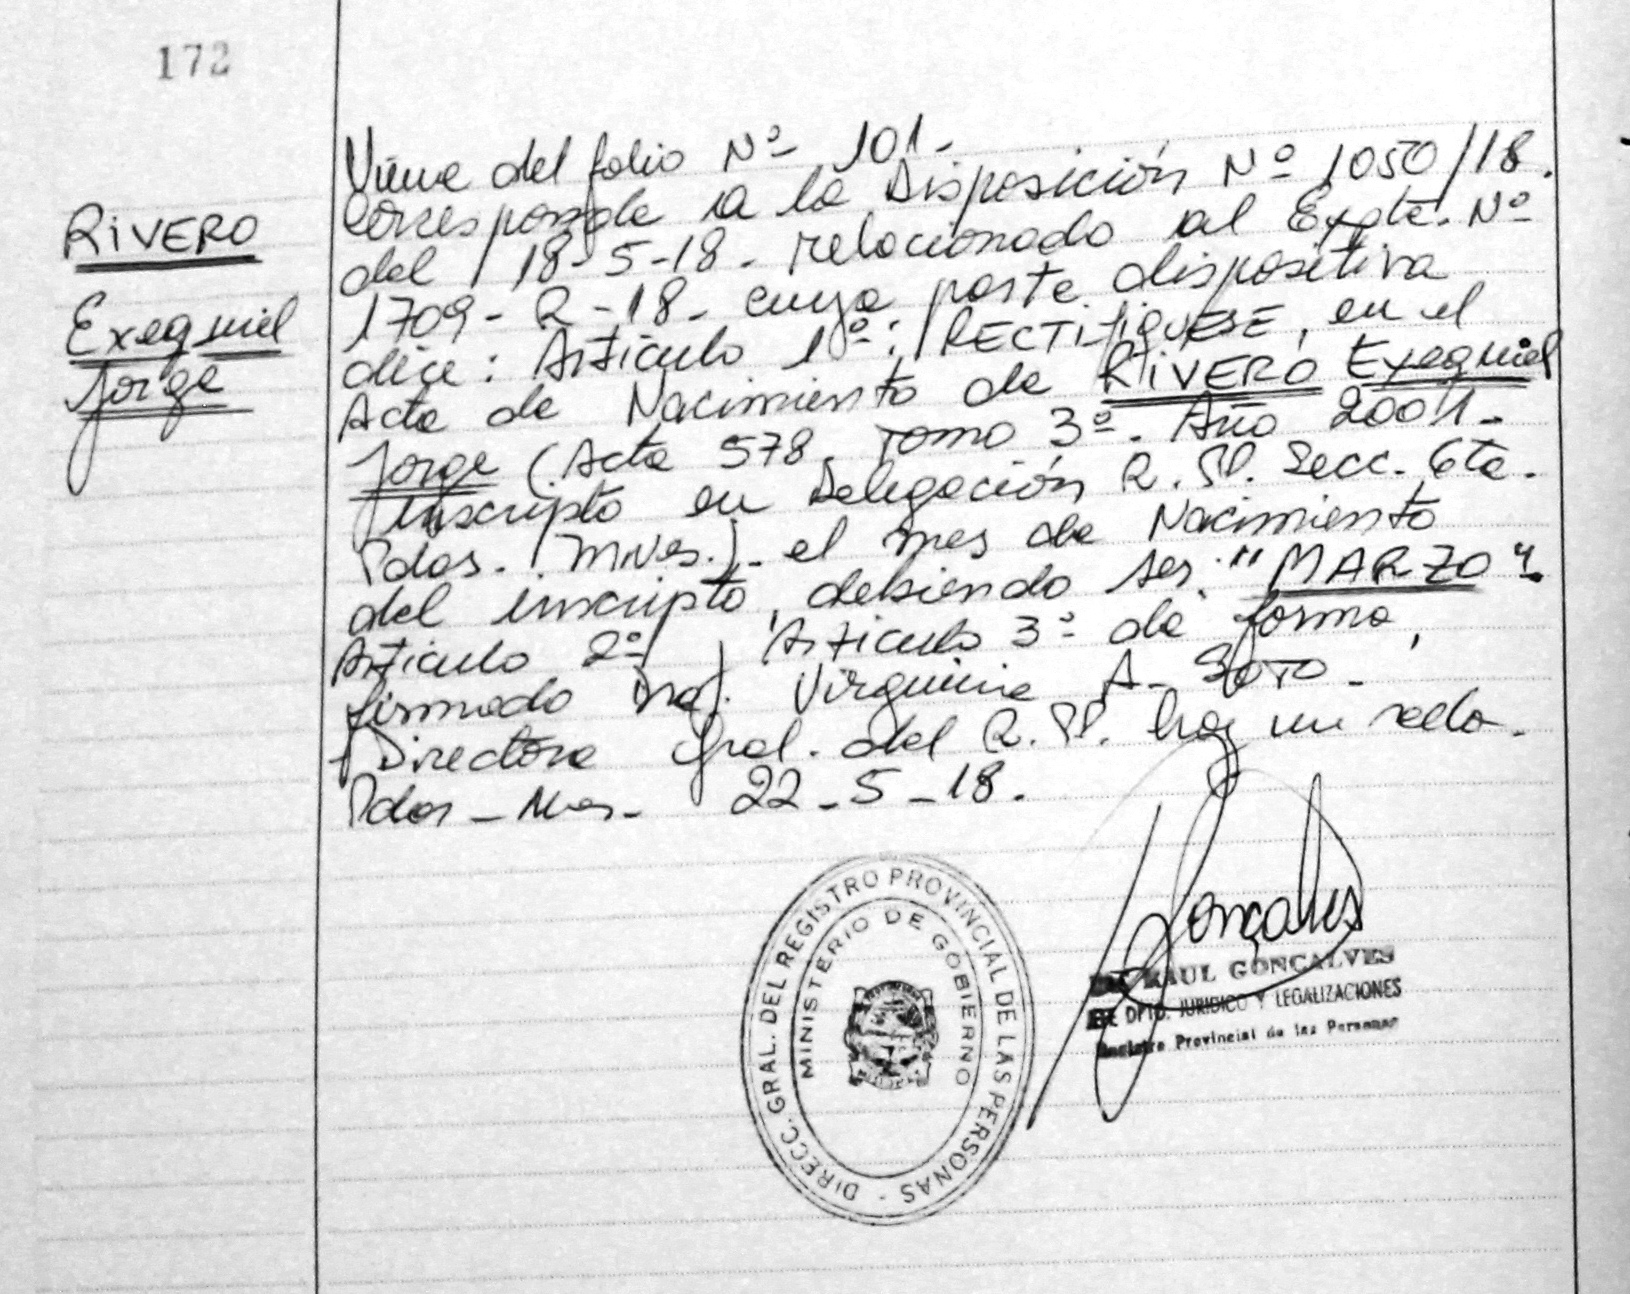 172
RIVERO
Exequiel
Jorge
Viene del folio Nº 101.-
Corresponde a la Disposición Nº 1050/18.
del 18-5-18. relacionado al Expte. Nº
1709-R-18- cuya parte dispositiva
dice: Artículo 1º: RECTIFIQUESE, en el
Acta de Nacimiento de RIVERO Exequiel
Jorge (Acta 578. Tomo 3º. Año 2001-
inscripto en Delegación R.P. Secc. 6ta.
Pdas. MNes.)- el mes de Nacimiento
del inscripto, debiendo ser: "MARZO".
Artículo 2º, Artículo 3º de forma,
firmado Virginia A. SOTO-
Directora Gral. del R.P. hay un sello.
Pdas- Mnes- 22-5-18.
DIRECC. GRAL. DEL REGISTRO PROVINCIAL DE LAS PERSONAS -
MINISTERIO DE GOBIERNO
Gonçalves
RAUL GONÇALVES
DPTO. JURIDICO Y LEGALIZACIONES
Registro Provincial de las Personas